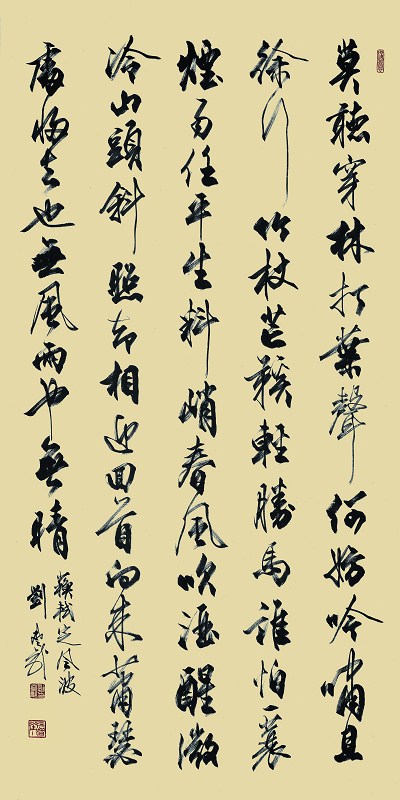 莫聽穿林打葉聲何妨吟嘯且
徐行竹杖芒鞋輕勝馬誰怕一蓑
煙雨任平生料峭春風吹酒醒微
冷山頭斜照却相迎回首向來蕭瑟
處歸去也無風雨也無晴
蘇軾定風波
劉